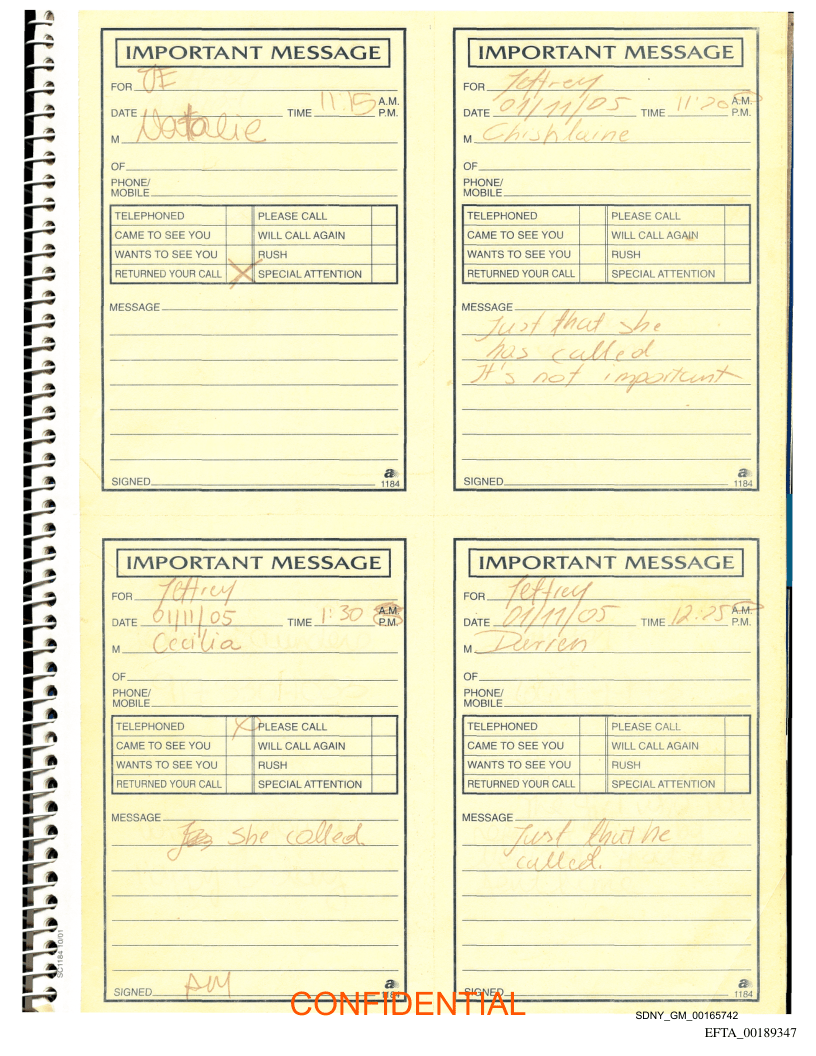 IMPORTANT MESSAGE
FOR JE
DATE TIME 11:15 A.M.
P.M.
M Natalie
OF
PHONE/
MOBILE
TELEPHONED PLEASE CALL
CAME TO SEE YOU WILL CALL AGAIN
WANTS TO SEE YOU RUSH
RETURNED YOUR CALL X SPECIAL ATTENTION
MESSAGE
SIGNED
a
1184
IMPORTANT MESSAGE
FOR Jeffrey
DATE 01/11/05 TIME 11:20 A.M.
P.M.
M Chishlaine
OF
PHONE/
MOBILE
TELEPHONED PLEASE CALL
CAME TO SEE YOU WILL CALL AGAIN
WANTS TO SEE YOU RUSH
RETURNED YOUR CALL SPECIAL ATTENTION
MESSAGE
Just that she
has called
It's not important
SIGNED
a
1184
IMPORTANT MESSAGE
FOR Jeffrey
DATE 01/11/05 TIME 1:30 A.M.
P.M.
M Cecilia
OF
PHONE/
MOBILE
TELEPHONED X PLEASE CALL
CAME TO SEE YOU WILL CALL AGAIN
WANTS TO SEE YOU RUSH
RETURNED YOUR CALL SPECIAL ATTENTION
MESSAGE
She called.
SIGNED AM
a
IMPORTANT MESSAGE
FOR Jeffrey
DATE 01/11/05 TIME 12:25 A.M.
P.M.
M Darren
OF
PHONE/
MOBILE
TELEPHONED PLEASE CALL
CAME TO SEE YOU WILL CALL AGAIN
WANTS TO SEE YOU RUSH
RETURNED YOUR CALL SPECIAL ATTENTION
MESSAGE
Just that he
called.
SIGNED
a
1184
SC1184 10/01
CONFIDENTIAL
SDNY_GM_00165742
EFTA_00189347